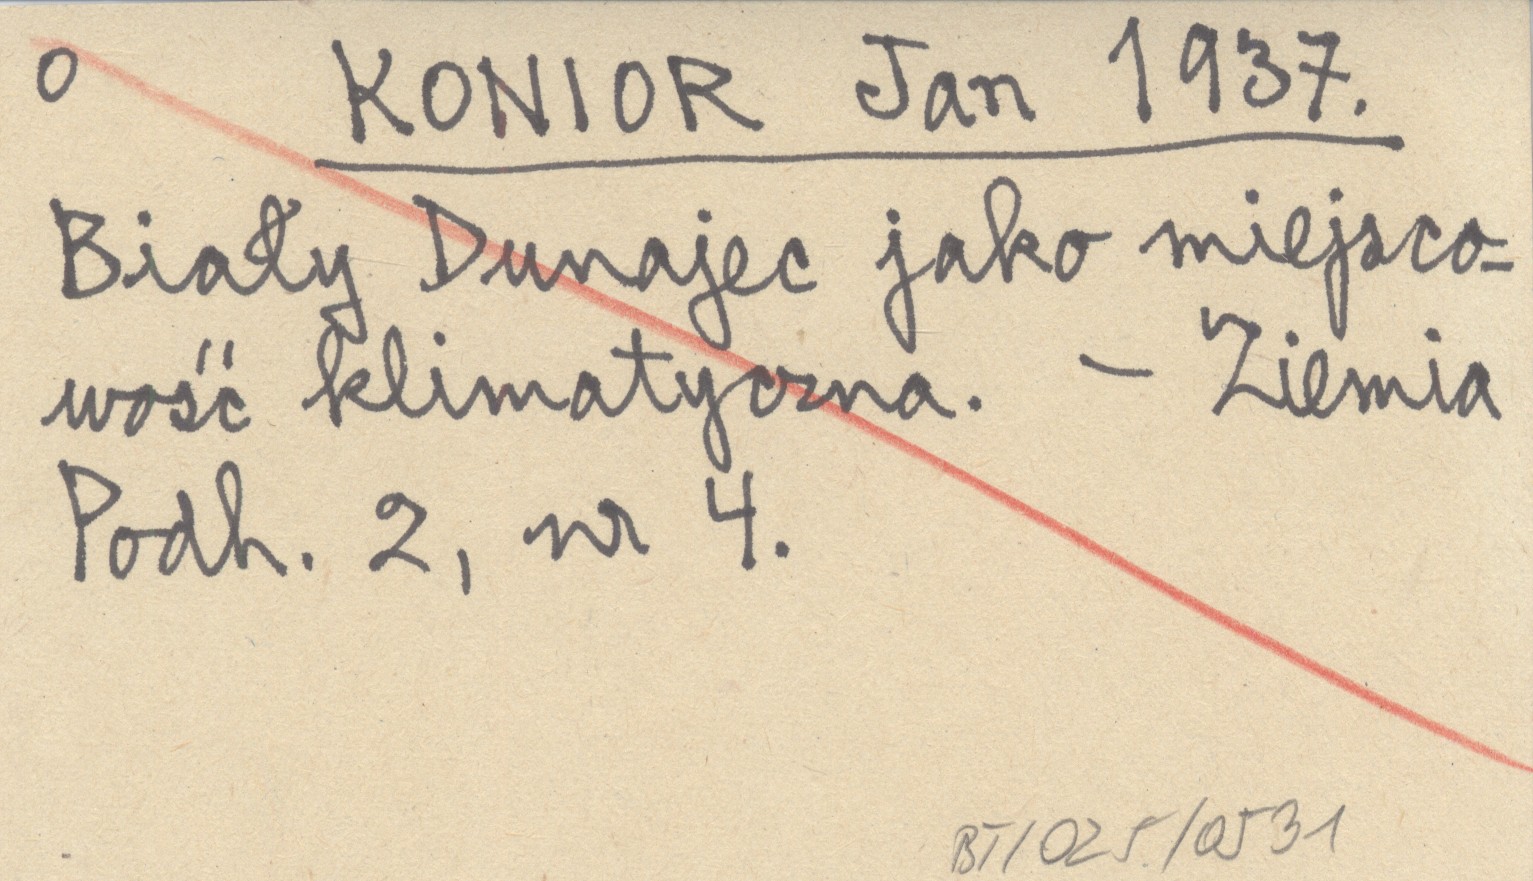 o KONIOR Jan 1937.
Biały Dunajec jako miejsco=
wość klimatyczna. – Ziemia
Podh. 2, nr 4.
BT/025./0531